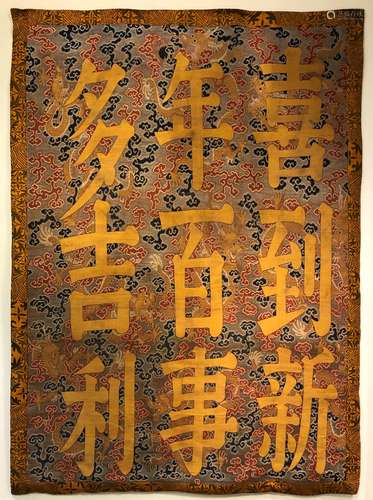 喜到新
年百事
多吉利